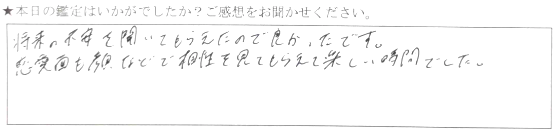 ★本日の鑑定はいかがでしたか？ご感想をお聞かせください。
将来の不安を聞いてもらえたので良かったです。
恋愛面も顔などで相性を見てもらえて楽しい時間でした。